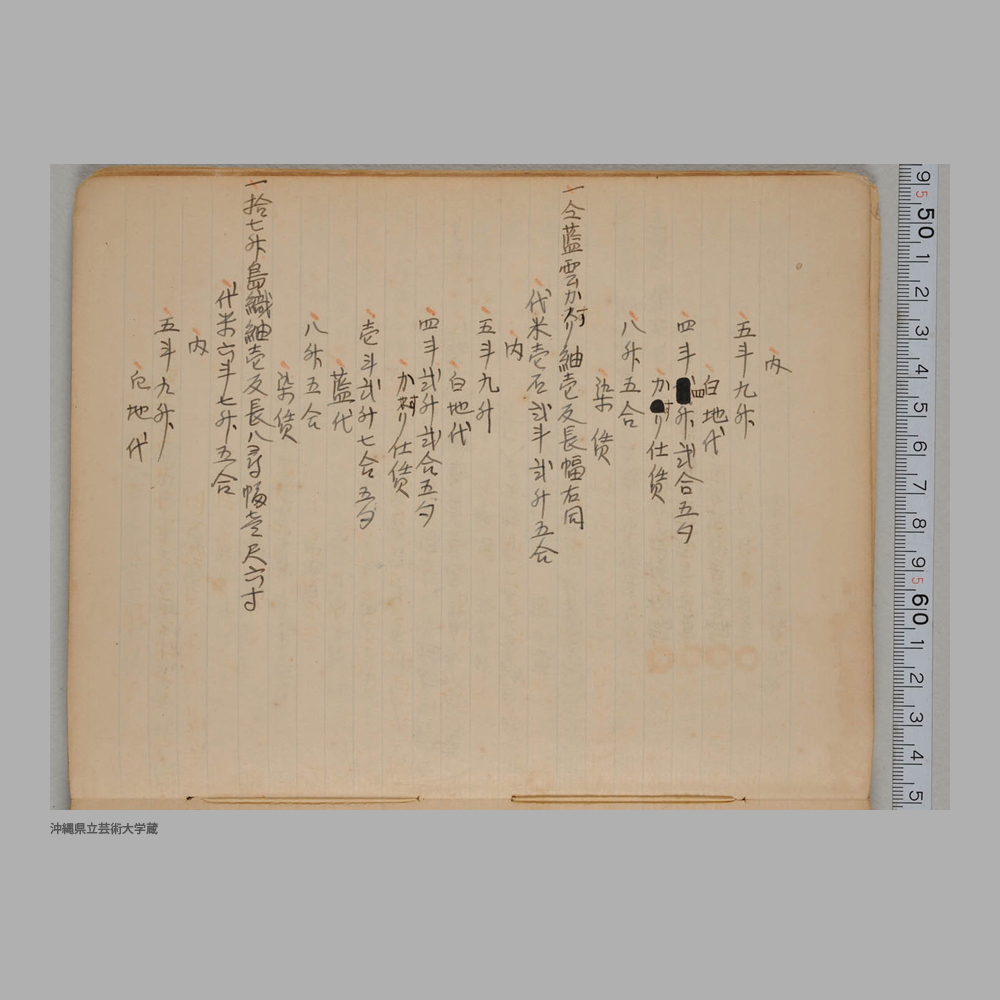 内
五斗九升
白地代
四斗弐升弐合五夕
かすり仕賃
八升五合
染賃
一 仝藍雲かすり紬壱反長幅右同
代米壱石弐斗弐升五合
内
五斗九升
白地代
四斗弐升弐合五夕
かすり仕賃
壱斗弐升七合五夕
藍代
八升五合
染賃
一 拾七升島織紬壱反長八尋幅壱尺六寸
代米六斗七升五合
内
五斗九升
白地代
9 5 50 1 2 3 4 5 6 7 8 9 5 60 1 2 3 4 5
沖縄県立芸術大学蔵